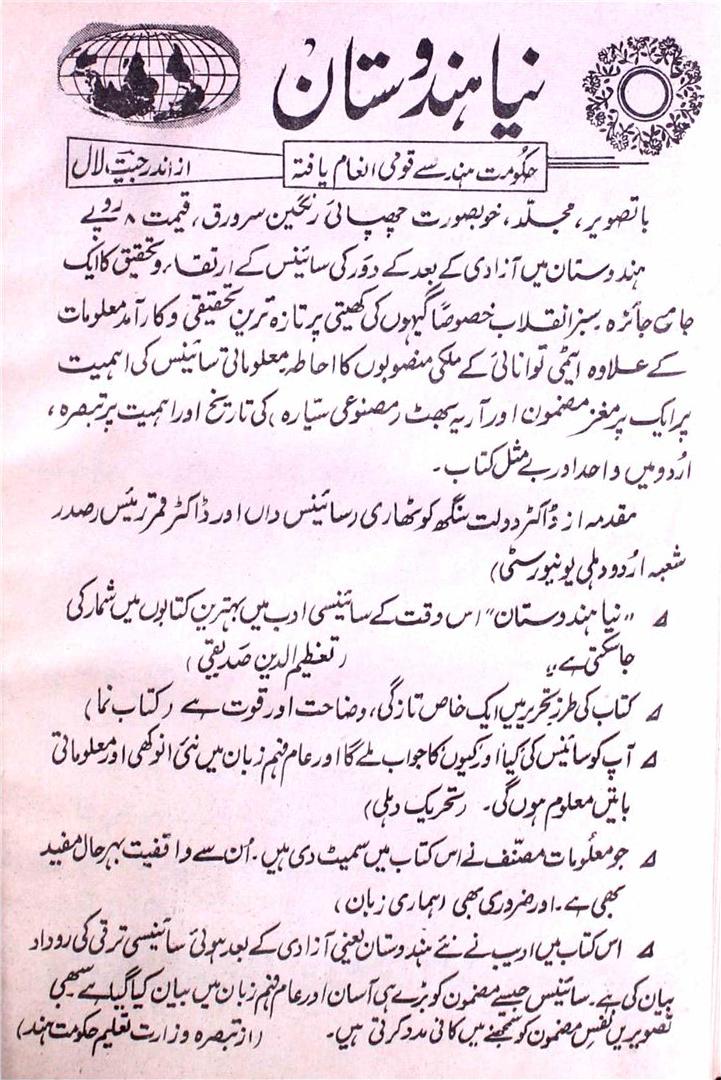 نیا ہندوستان
حکومت ہند سے قومی انعام یافتہ
از اندرجیت لال
باتصویر، مجلد، خوبصورت چھپائی رنگین سرورق، قیمت ۸ روپے
ہندوستان میں آزادی کے بعد کے دَور کی سائینس کے ارتقاء و تحقیق کا ایک
جامع جائزہ۔ سبز انقلاب خصوصاً گیہوں کی کھیتی پر تازہ ترین تحقیقی و کارآمد معلومات
کے علاوہ ایٹمی توانائی کے ملکی منصوبوں کا احاطہ۔ معلوماتی سائینس کی اہمیت
پر ایک پرمغز مضمون اور آریہ بھٹ (مصنوعی سیّارہ) کی تاریخ اور اہمیت پر تبصرہ،
اُردو میں واحد اور بے مثل کتاب۔
مقدمہ از ڈاکٹر دولت سنگھ کوٹھاری (سائینس داں) اور ڈاکٹر قمر رئیس (صدر
شعبہ اُردو دہلی یونیورسٹی)
"نیا ہندوستان" اس وقت کے سائینسی ادب میں بہترین کتابوں میں شمار کی
جاسکتی ہے" (تعظیم الدین صدیقی)
کتاب کی طرز تحریر میں ایک خاص تازگی، وضاحت اور قوت ہے (کتاب نما)
آپ کو سائینس کی 'کیا' اور 'کیوں' کا جواب ملے گا اور عام فہم زبان میں نئی انوکھی اور معلوماتی
باتیں معلوم ہوں گی۔ (تحریک دہلی)
جو معلومات مصنّف نے اس کتاب میں سمیٹ دی ہیں۔ اُن سے واقفیت بہرحال مفید
بھی ہے۔ اور ضروری بھی (ہماری زبان)
اس کتاب میں ادیب نے نئے ہندوستان یعنی آزادی کے بعد ہوئی سائینسی ترقی کی روداد
بیان کی ہے۔ سائینس جیسے مضمون کو بڑے ہی آسان اور عام فہم زبان میں بیان کیا گیا ہے سبھی
تصویریں نفسِ مضمون کو سمجھنے میں کافی مدد کرتی ہیں۔ (از تبصرہ وزارت تعلیم حکومت ہند)